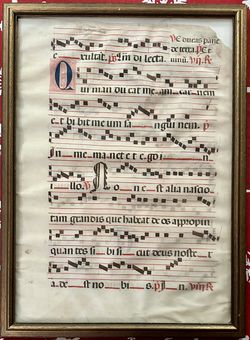 Ve ducas pane
de terra. P. E t
vinū. VII. R.
e xultat. ps. In di lecta.
Q ui man du cat me am car nem
e t bi bit me um sa n gui nem. p.
In me ma net et e go i n
i llo. V. N o n e st alia nascio
tam grandis que habeat de os appropin
quan tes si bi s i cut deus noste r
a de st no b i s. p. I n. VII. R.